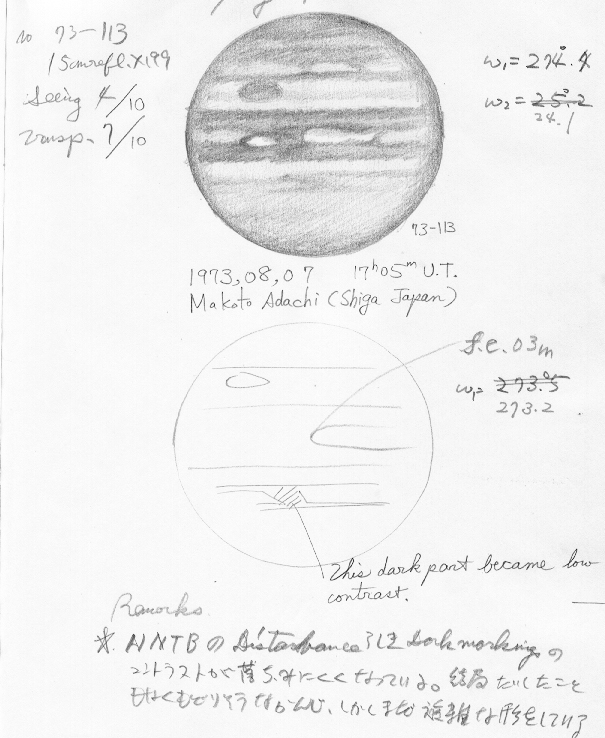 no 73-113
15cm refl. ×199
Seeing 4/10
Transp. 7/10
ω1 = 274.4
ω2 = 25.2
24.1
73-113
1973,08,07 17h05m U.T.
Makoto Adachi (Shiga Japan)
f.e. 03m
ω1= 273.5
273.2
This dark part became low
contrast.
Remarks.
※ NNTBのDisturbance dark markingの
コントラストが落ちみにくくなっている。結局たいしたこと
しかしまだ複雑な形をしている